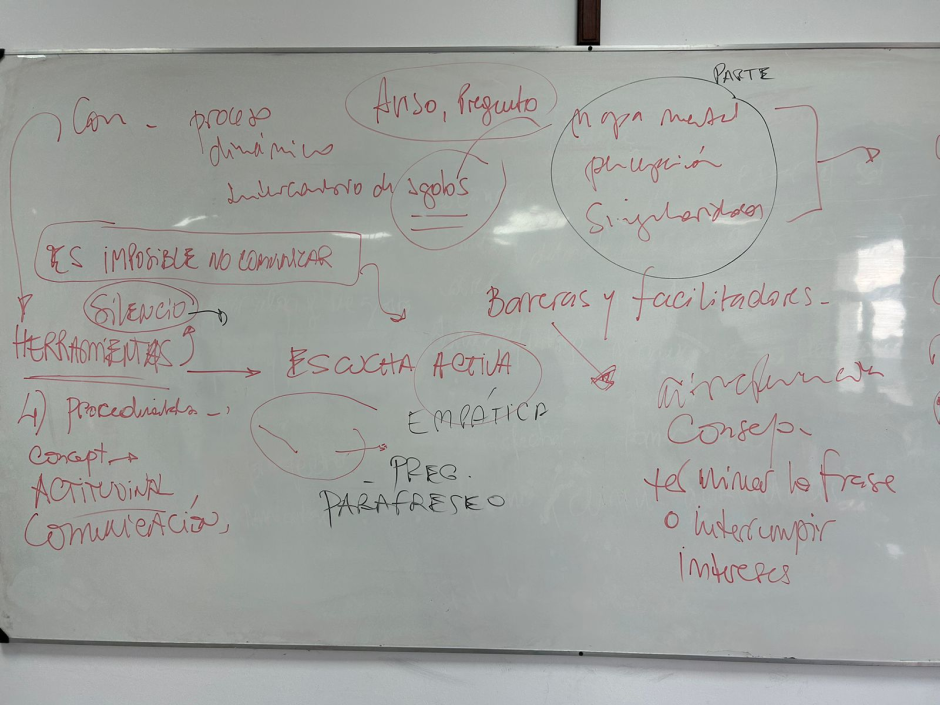 PARTE
Aviso, Pregunto
Com - proceso
dinámico
Intercambio de
Mapa mental
percepción
Singularidad
ES IMPOSIBLE NO COMUNICAR
SILENCIO
HERRAMIENTAS
Barreras y facilitadores -
ESCUCHA ACTIVA
EMPÁTICA
- PREG.
PARAFRESEO
4)
concept
ACTITUDINAL
COMUNICACIÓN,
Consejo -
terminar la frase
o interrumpir
intereses